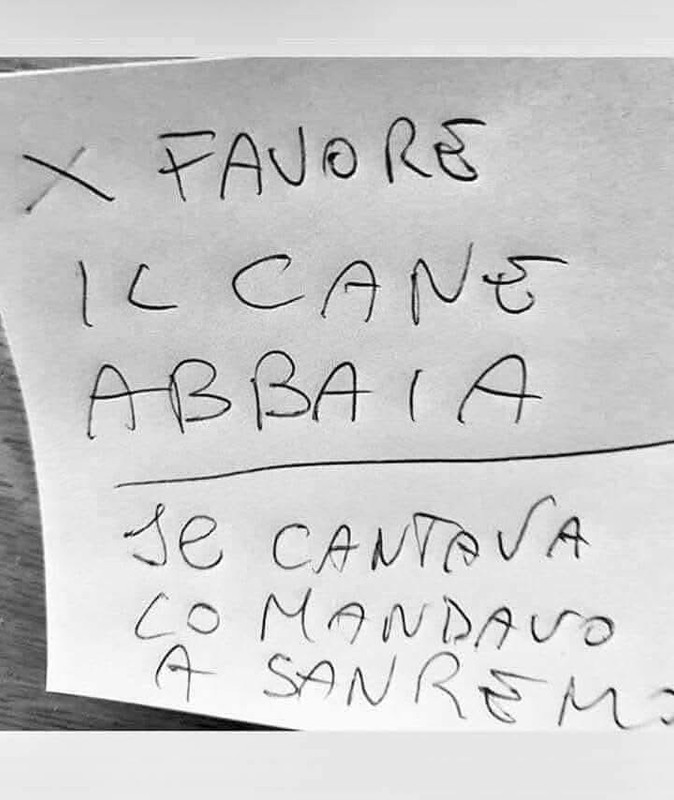 X FAVORE
IL CANE
ABBAIA
SE CANTAVA
LO MANDAVO
A SANREMO